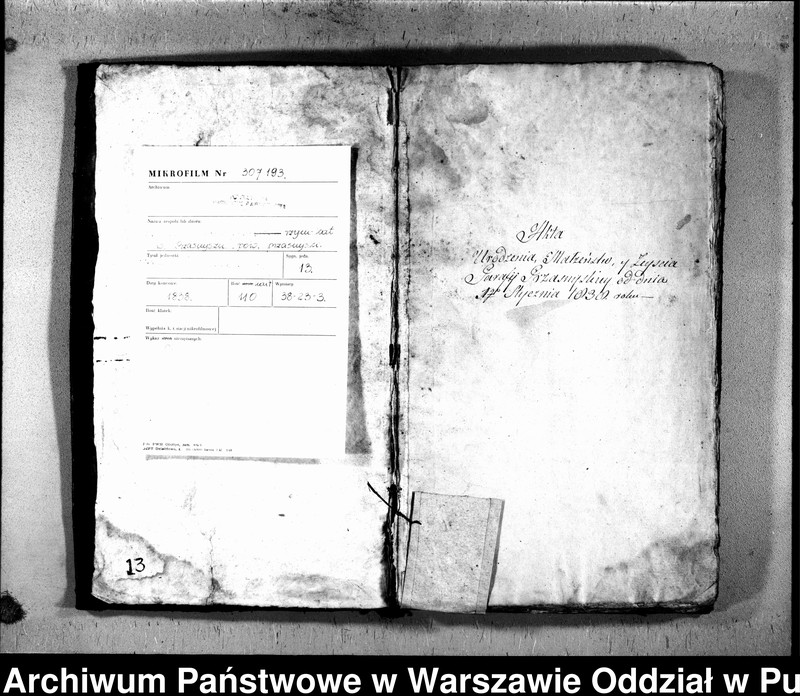 MIKROFILM Nr 307193.
Archiwum
Nazwa zespołu lub zbioru
rzym-kat
w Przasnyszu pow. przasnyski
Tytuł jednostki
Sygn. jedn.
13.
Daty krańcowe
1838.
Ilość
110
Wymiary
38-23-3.
Ilość klatek
Wykaz stron
13
Akta
Urodzenia, Małżeństw, y Zeyscia
Parafij Przasnyskiey od dnia
1go Stycznia 1838 roku
Archiwum Państwowe w Warszawie Oddział w Pu